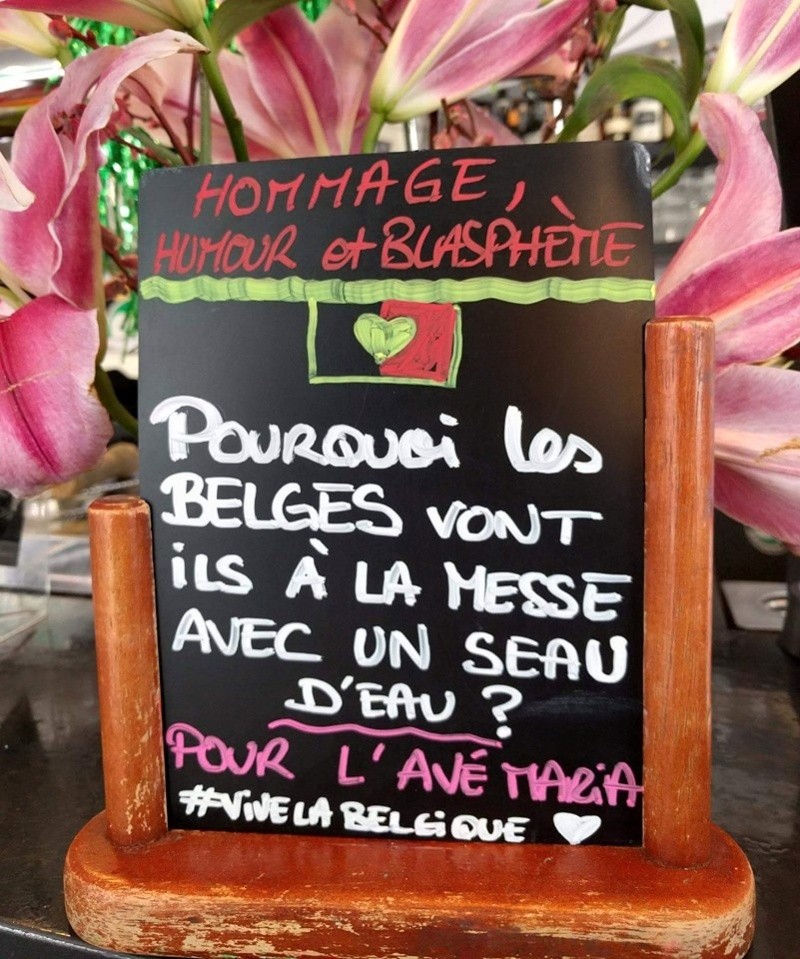 HOMMAGE,
HUMOUR et BLASPHÈME
POURQUOI les
BELGES VONT
ILS À LA MESSE
AVEC UN SEAU
D'EAU ?
POUR L'AVÉ MARIA
#VIVE LA BELGIQUE